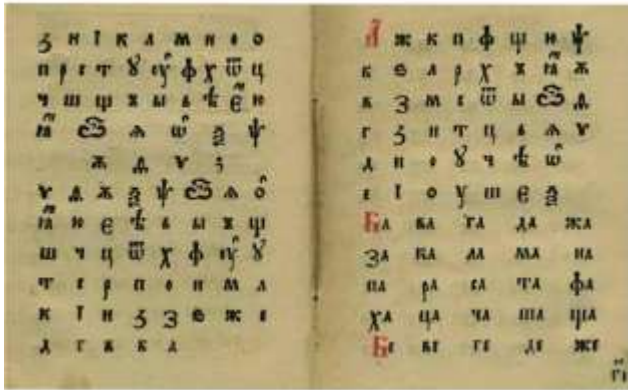 з и ї к л м н о ѻ
п р с т ꙋ оу ф х ѿ ц
ч ш щ ъ ы ь ѣ є ю
ꙗ ѽ ѧ ѡ ѯ ѱ
ѫ ѳ ѵ з
ѵ ѳ ѫ ѯ ѱ ѽ ѧ ѡ
ꙗ ю є ѣ ь ы ъ щ
ш ч ц ѿ х ф оу ꙋ
т с р п о н м л
к ї и ꙁ з ѕ ж е
д г в б а
А ж к п ф щ ю ѱ
б ѕ л р х ъ ꙗ ѫ
в з м с ѿ ы ѽ ѳ
г ꙁ н т ц ь ѧ ѵ
д и о ꙋ ч ѣ ѡ
е ї о у ш є ѯ
Ба ва га да жа
за ка ла ма на
па ра са та фа
ха ца ча ша ща
Бе ве ге де же
гі